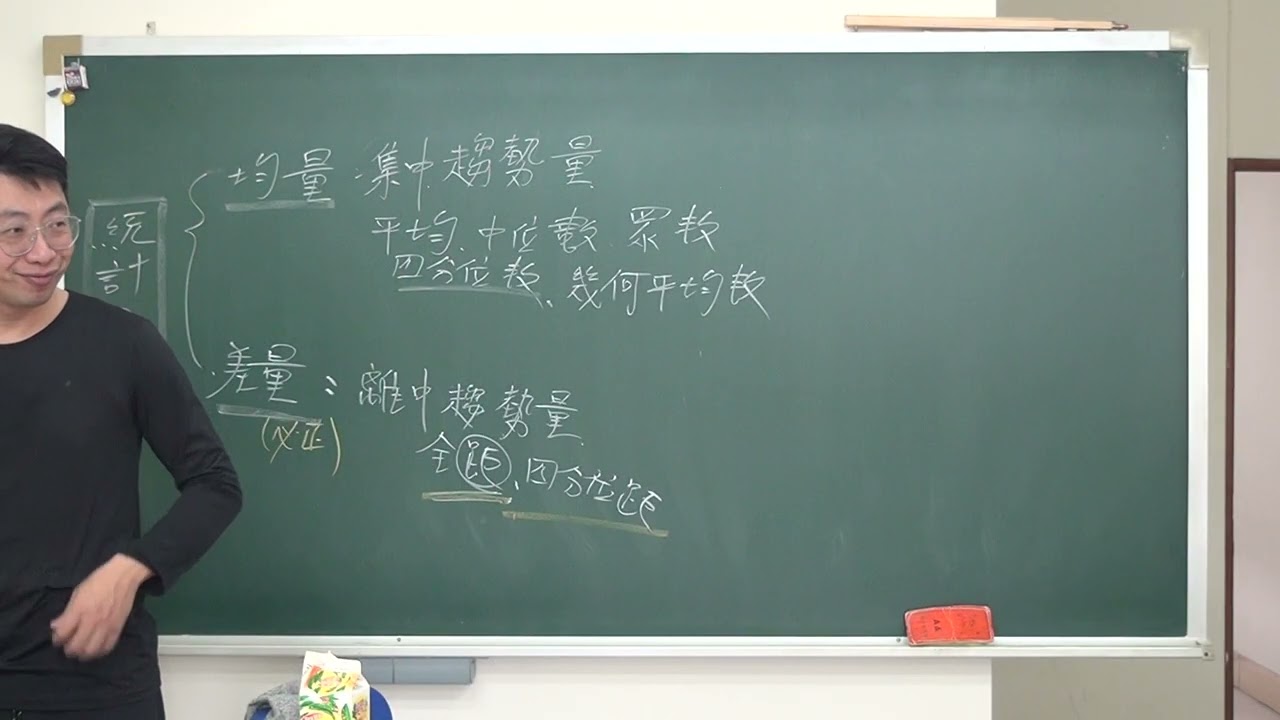 統計
均量 集中趨勢量
平均、中位數、眾數
四分位數、幾何平均數
差量：離中趨勢量
(必正)
全距、四分位距